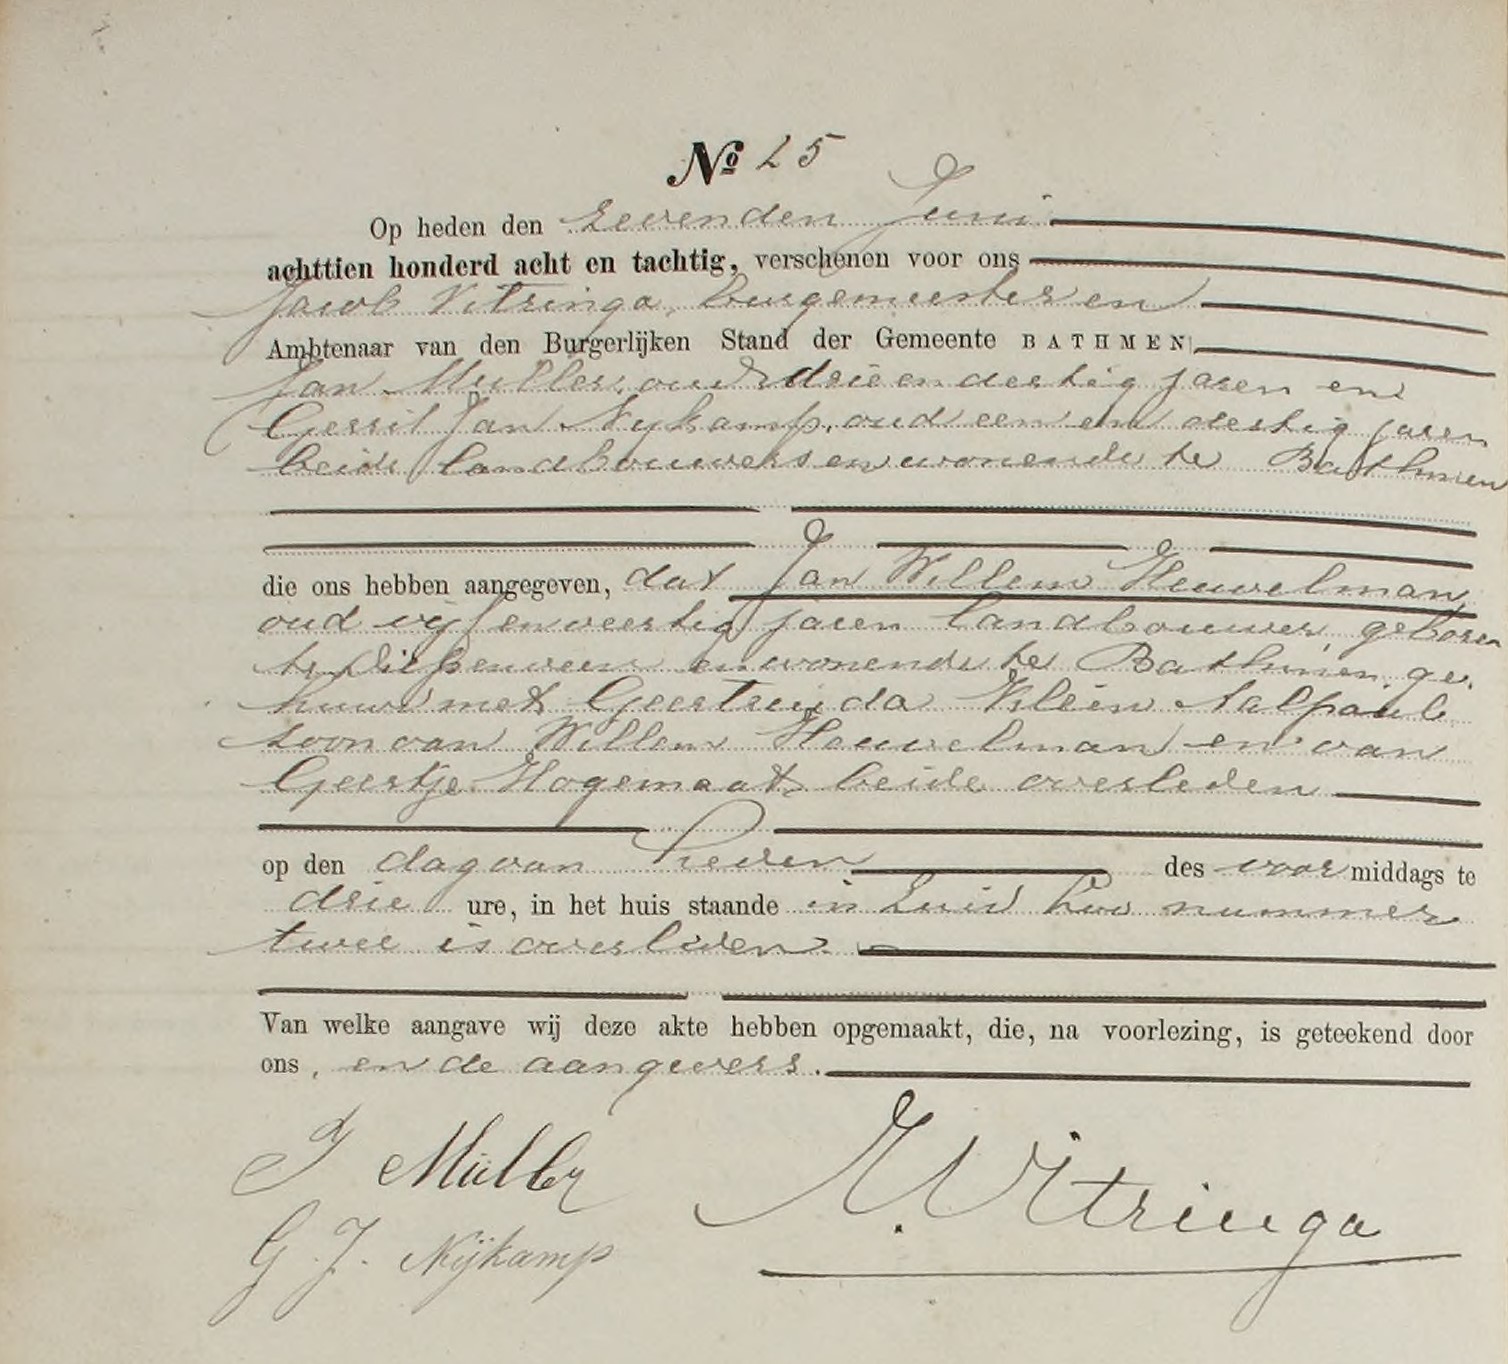 № 25
Op heden den zevenden Juni
achttien honderd acht en tachtig, verschenen voor ons
Jacob Vitringa, burgemeester en
Ambtenaar van den Burgerlijken Stand der Gemeente BATHMEN,
Jan Muller, oud drie en dertig jaren en
Gerrit Jan Nykamp, oud een en dertig jaren
beide landbouwers en wonende te Bathmen
die ons hebben aangegeven, dat Jan Willem Heuvelman,
oud vijf en veertig jaren landbouwer geboren
te Diepenveen en wonende te Bathmen, ge-
huwd met Geertruida Klein Nalpaul
zoon van Willem Heuvelman en van
Geertje Hogemaat, beide overleden
op den dag van heden des voor middags te
drie ure, in het huis staande in Zuid Loo nummer
twee is overleden.
Van welke aangave wij deze akte hebben opgemaakt, die, na voorlezing, is geteekend door
ons, en de aangevers.
J Müller
G. J. Nijkamp
J. Vitringa